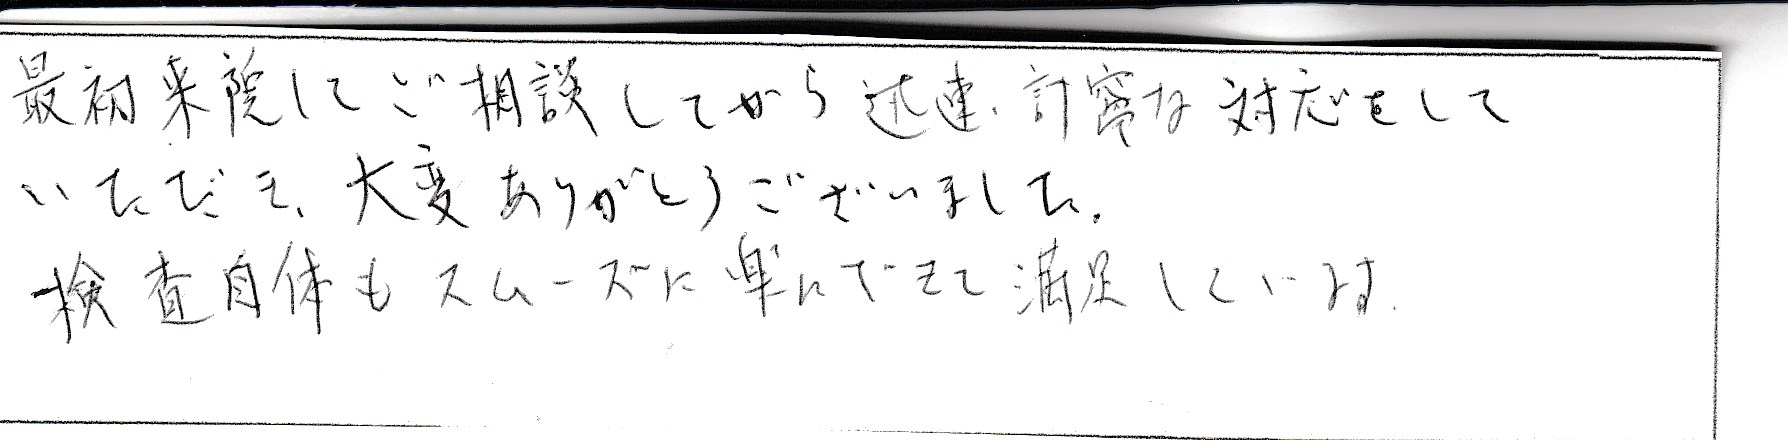 最初来院してご相談してから迅速、計寧な対応をして
いただき、大変ありがとうございました。
検査自体もスムーズに楽にできて満足しています.